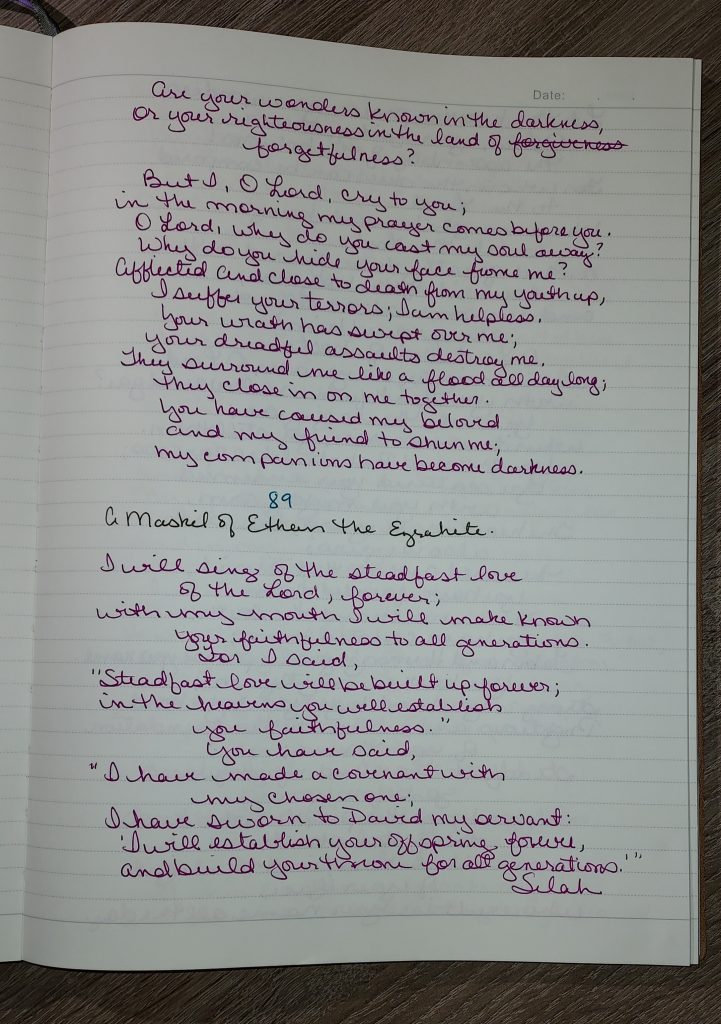 Date:
Are your wonders known in the darkness,
Or your righteousness in the land of forgiveness
forgetfulness?
But I, O Lord, cry to you;
in the morning my prayer comes before you.
O Lord, why do you cast my soul away?
Why do you hide your face frome me?
Afflicted and close to death from my youth up,
I suffer your terrors; I am helpless.
Your wrath has swept over me;
your dreadful assaults destroy me.
They surround me like a flood all day long;
they close in on me together.
You have caused my beloved
and my friend to shun me;
my companions have become darkness.
89
A Maskil of Ethan the Ezrahite.
I will sing of the steadfast love
of the Lord, forever;
with my mouth I will make known
your faithfulness to all generations.
For I said,
"Steadfast love will be built up forever;
in the heavens you will establish
you faithfulness."
You have said,
"I have made a covenant with
my chosen one;
I have sworn to David my servant:
'I will establish your offspring forever,
and build your throne for all generations.'"
Selah